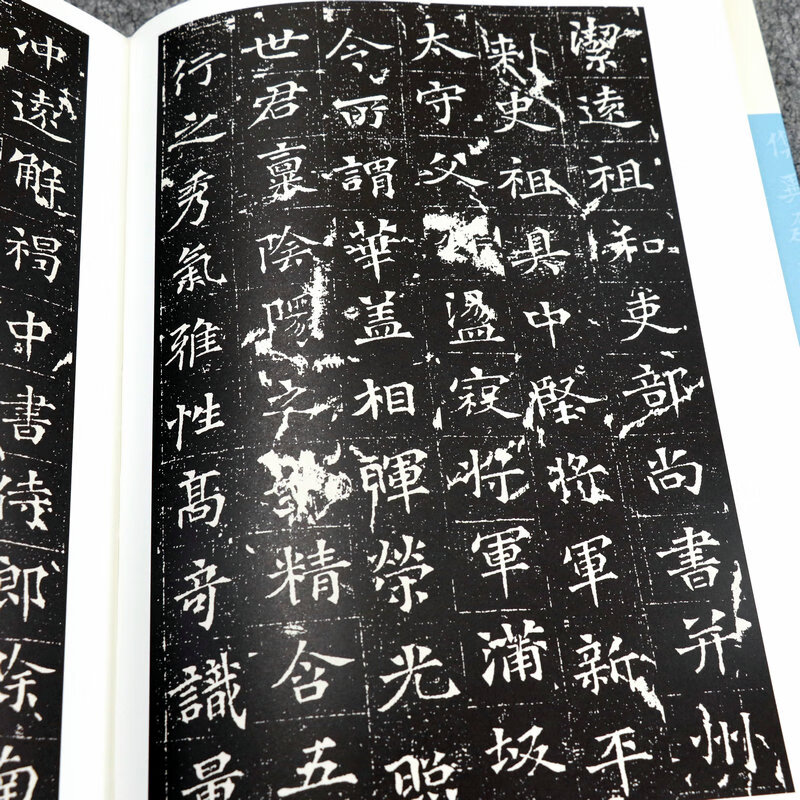 潔遠祖和吏部尚書并州
刾史祖具中堅将軍新平
太守父盪寇将軍蒲坂
令所謂華盖相暉榮光照
世君稟陰陽之精含五
行之秀氣雅性髙竒識量
冲遠解褐中書侍郎除南